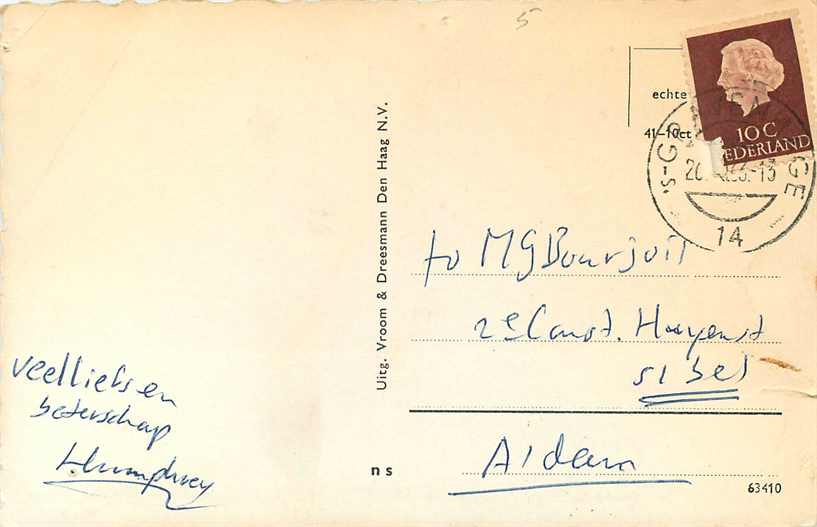 5
echte
41-10ct
10 C
NEDERLAND
's-GRAVENHAGE
14
Uitg. Vroom & Dreesmann Den Haag N.V.
to MG Bourjoil
2e Const. Huygenst
51 bel
Veel liefs en
beterschap
Humphrey
A'dam
ns
63410